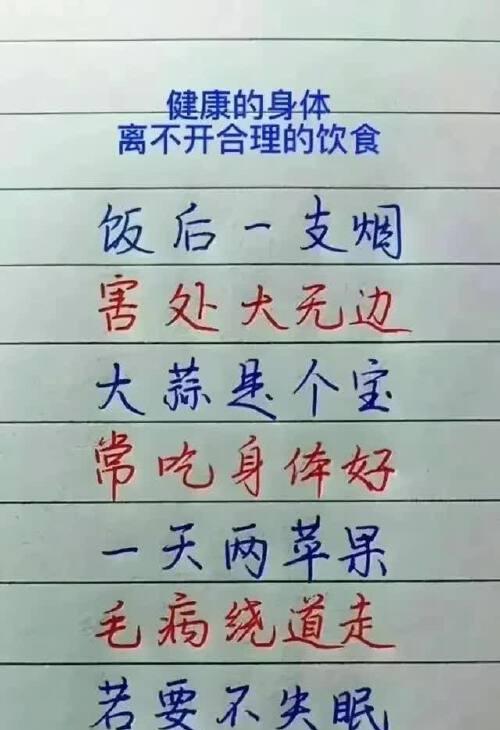 健康的身体
离不开合理的饮食
饭后一支烟
害处大无边
大蒜是个宝
常吃身体好
一天两苹果
毛病绕道走
若要不失眠